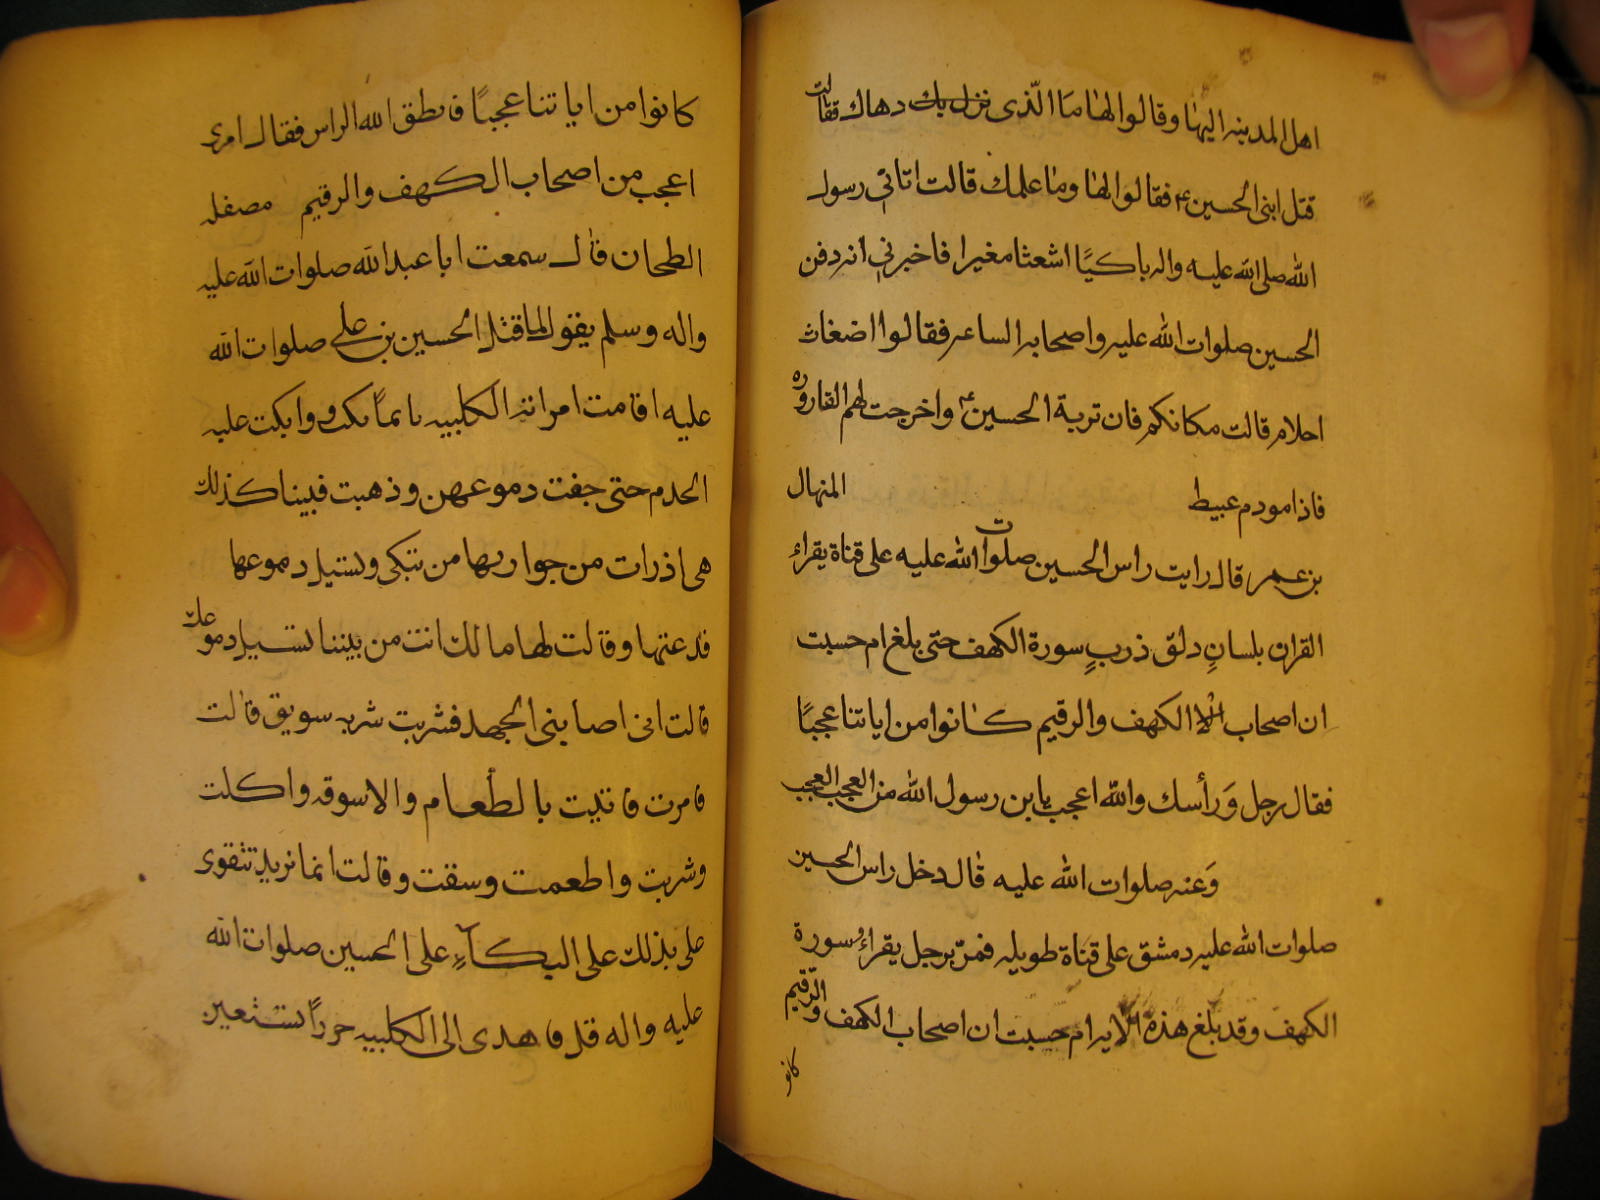 اهل المدينه اليها وقالوا لها ما الّذى نزل بك دهاك فقالت
قتل ابنى الحسين ع فقالوا لها وما علمك قالت اتانى رسول
الله صلى الله عليه واله باكيًا اشعثا مغبرا فاخبرنى انه دفن
الحسين صلوات الله عليه واصحابه الساعه فقالوا اضغاث
احلام قالت مكانكم فان تربة الحسين ع واخرجت لهم القاروره
فاذا هو دم عبيط المنهال
بن عمر قال رايت راس الحسين صلوات الله عليه على قناة يقراء
القران بلسانٍ دلق ذربٍ سورة الكهف حتى بلغ ام حسبت
ان اصحاب الكهف والرقيم كانوا من اياتنا عجبًا
فقال رجل وَرأسك والله اعجب يابن رسول الله من العجب العجب
وَعنه صلوات الله عليه قال دخل راس الحسين
صلوات الله عليه دمشق على قناة طويله فمرّ برجل يقراء سورة
الكهف وقد بلغ هذه الايه ام حسبت ان اصحاب الكهف والرّقيم
كانو
كانوا من اياتنا عجبًا فانطق الله الراس فقال امرى
اعجب من اصحاب الكهف والرقيم مصقله
الطحان قال سمعت ابا عبد الله صلوات الله عليه
واله وسلم يقول لما قتل الحسين بن على صلوات الله
عليه اقامت امراته الكلبيه ماتماً بكت وابكت عليه
الخدم حتى جفت دموعهن وذهبت فبينا كذلك
هى اذ رات من جواريها من تبكى وتسيل دموعها
فدعتها وقالت لها مالك انت من بيننا تسيل دموعك
قالت انى اصابنى الجهد فشربت شربه سويق قالت
فامرت فاتيت بالطعام والاسوقه واكلت
وشربت واطعمت وسقت وقالت انما نريد نتقوى
على بذلك على البكآءِ على الحسين صلوات الله
عليه واله قد فاهدى الى الكلبيه جرراً تستعين